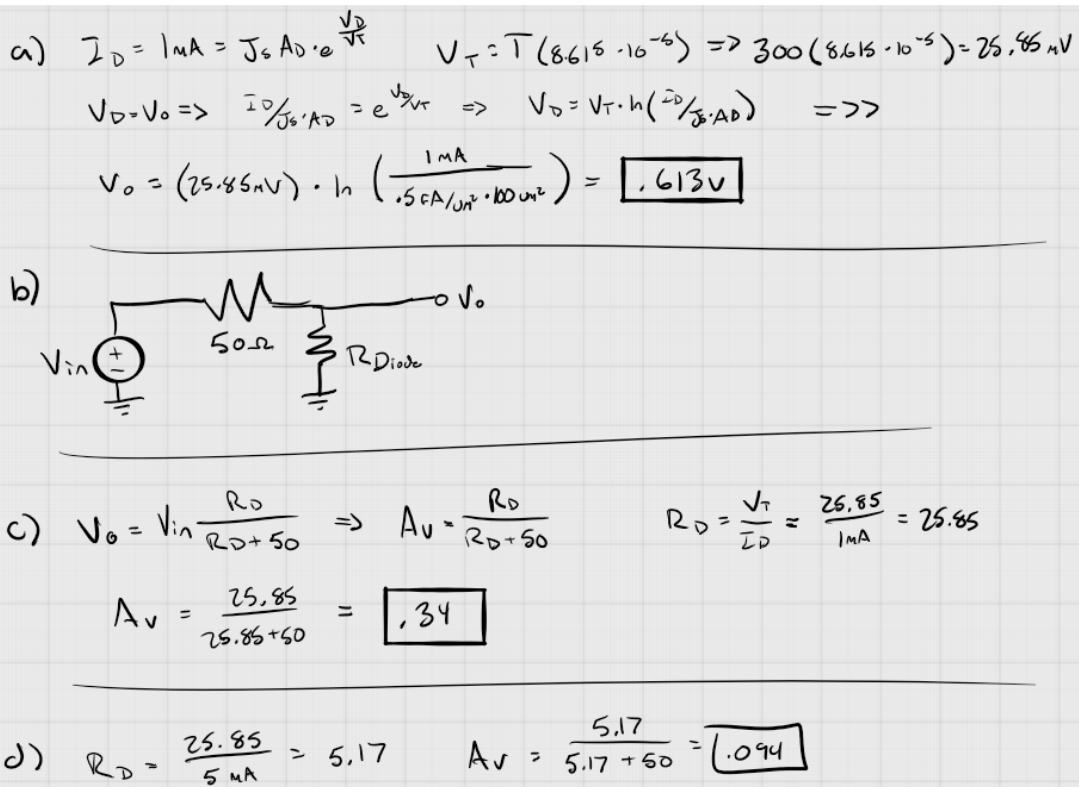 a) I_D = 1mA = J_s A_D · e^(V_D/V_T) V_T = T(8.615 · 10^-5) => 300(8.615 · 10^-5) = 25.85 mV
V_D = V_o => I_D/J_s·A_D = e^(V_D/V_T) => V_D = V_T · ln(I_D/J_s·A_D) =>>
V_o = (25.85mV) · ln (1mA / .5fA/um² · 100um²) = .613v
b)
V_o
50Ω
V_in + − R_Diode
c) V_o = V_in R_D / R_D + 50 => A_v = R_D / R_D + 50 R_D = V_T / I_D = 25.85 / 1mA = 25.85
A_v = 25.85 / 25.85+50 = .34
d) R_D = 25.85 / 5 mA = 5.17 A_v = 5.17 / 5.17 + 50 = .094